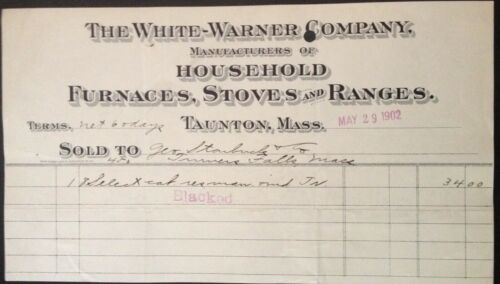 THE WHITE-WARNER COMPANY,
MANUFACTURERS OF
HOUSEHOLD
FURNACES, STOVES AND RANGES.
TERMS, net 60 days TAUNTON, MASS. MAY 29 1902
SOLD TO Geo Starbuck & Co
Turners Falls Mass
1 Select cab 34 00
Blacked